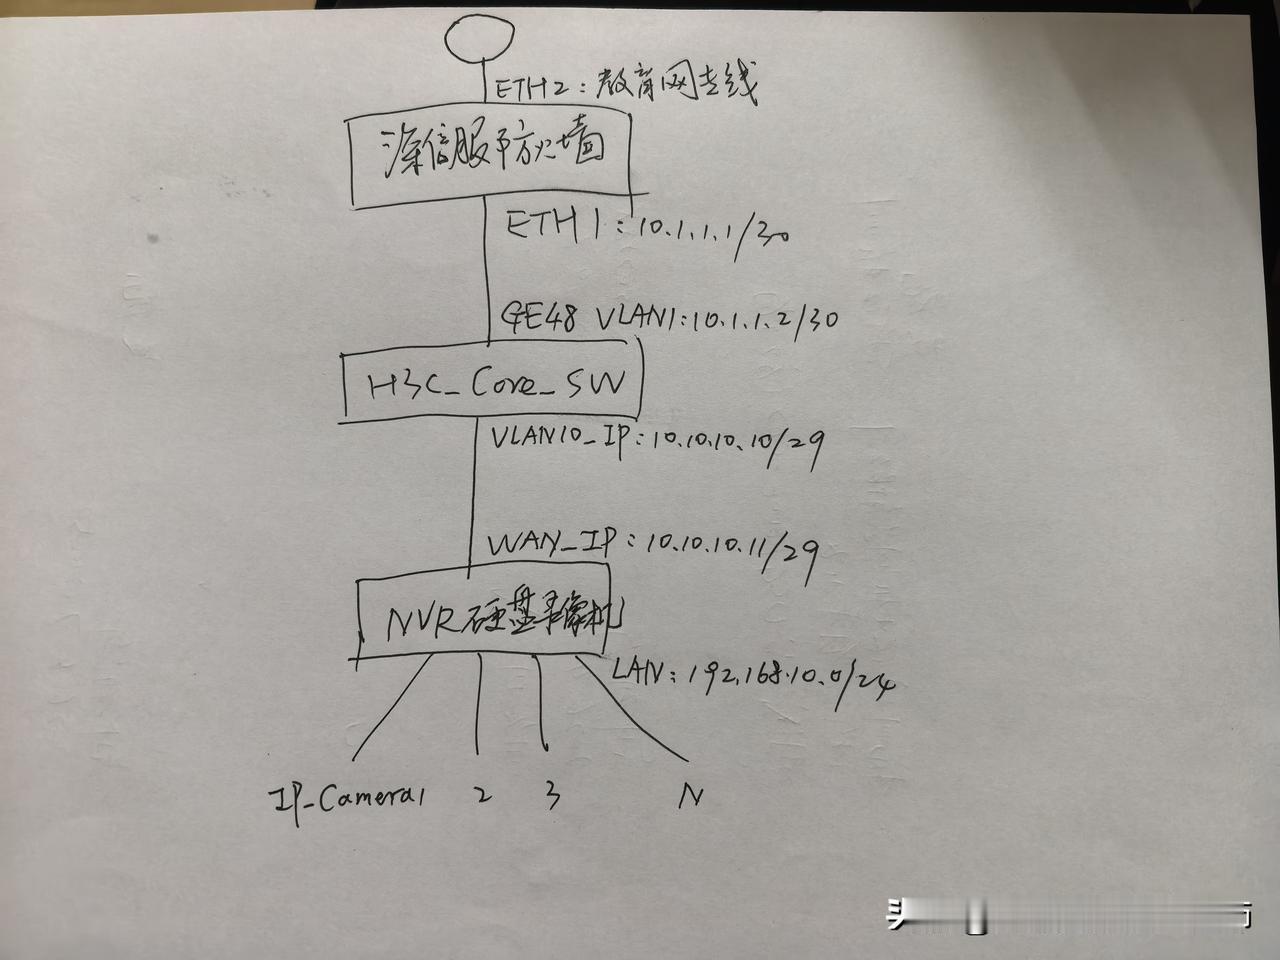 ETH2：教育网专线
深信服防火墙
ETH1：10.1.1.1/30
GE48 VLAN1:10.1.1.2/30
H3C_Core_SW
VLAN10_IP：10.10.10.10/29
WAN_IP：10.10.10.11/29
NVR硬盘录像机
LAN：192.168.10.0/24
IP_Camera1 2 3 N